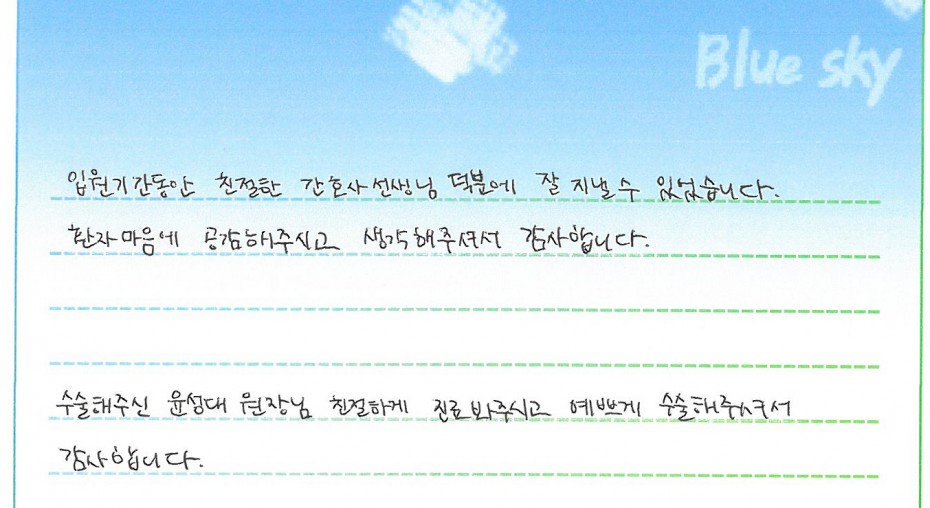 Blue sky
입원기간동안 친절한 간호사선생님 덕분에 잘 지낼 수 있었습니다.
환자마음에 공감해주시고 생각해주셔서 감사합니다.
수술해주신 윤성대 원장님 친절하게 진료봐주시고 예쁘게 수술해주셔서
감사합니다.